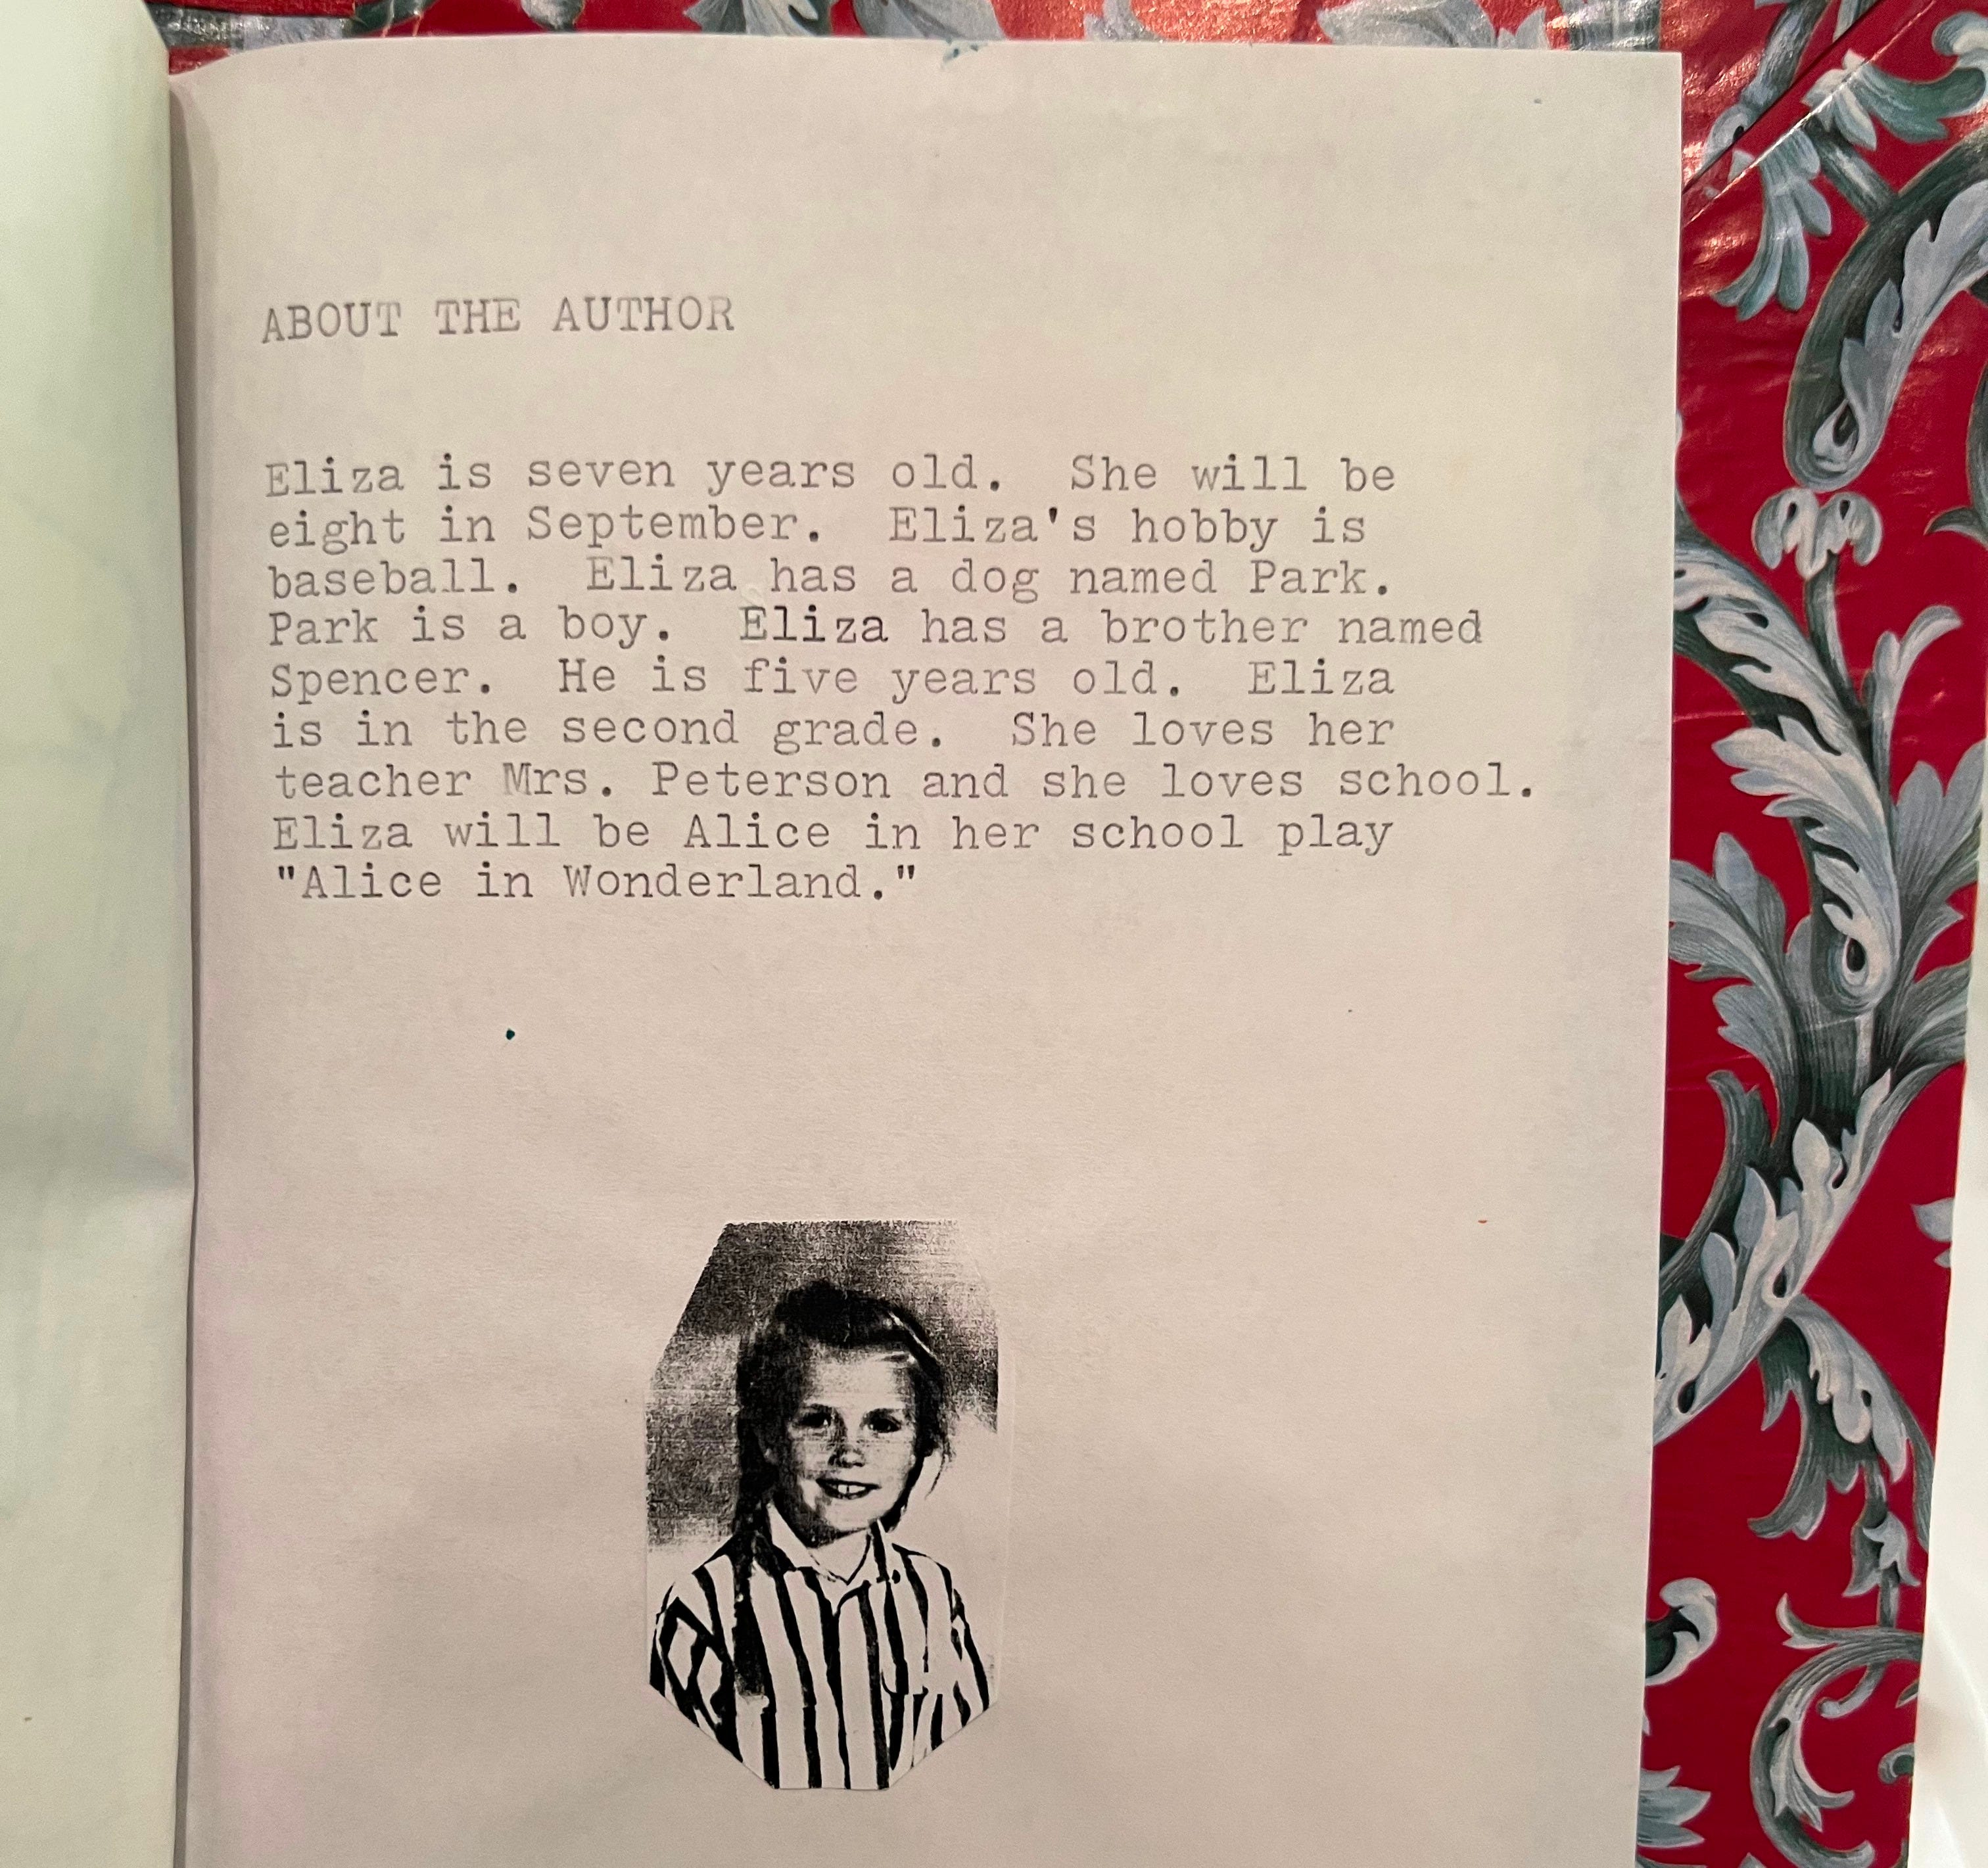 ABOUT THE AUTHOR
Eliza is seven years old. She will be
eight in September. Eliza's hobby is
baseball. Eliza has a dog named Park.
Park is a boy. Eliza has a brother named
Spencer. He is five years old. Eliza
is in the second grade. She loves her
teacher Mrs. Peterson and she loves school.
Eliza will be Alice in her school play
"Alice in Wonderland."